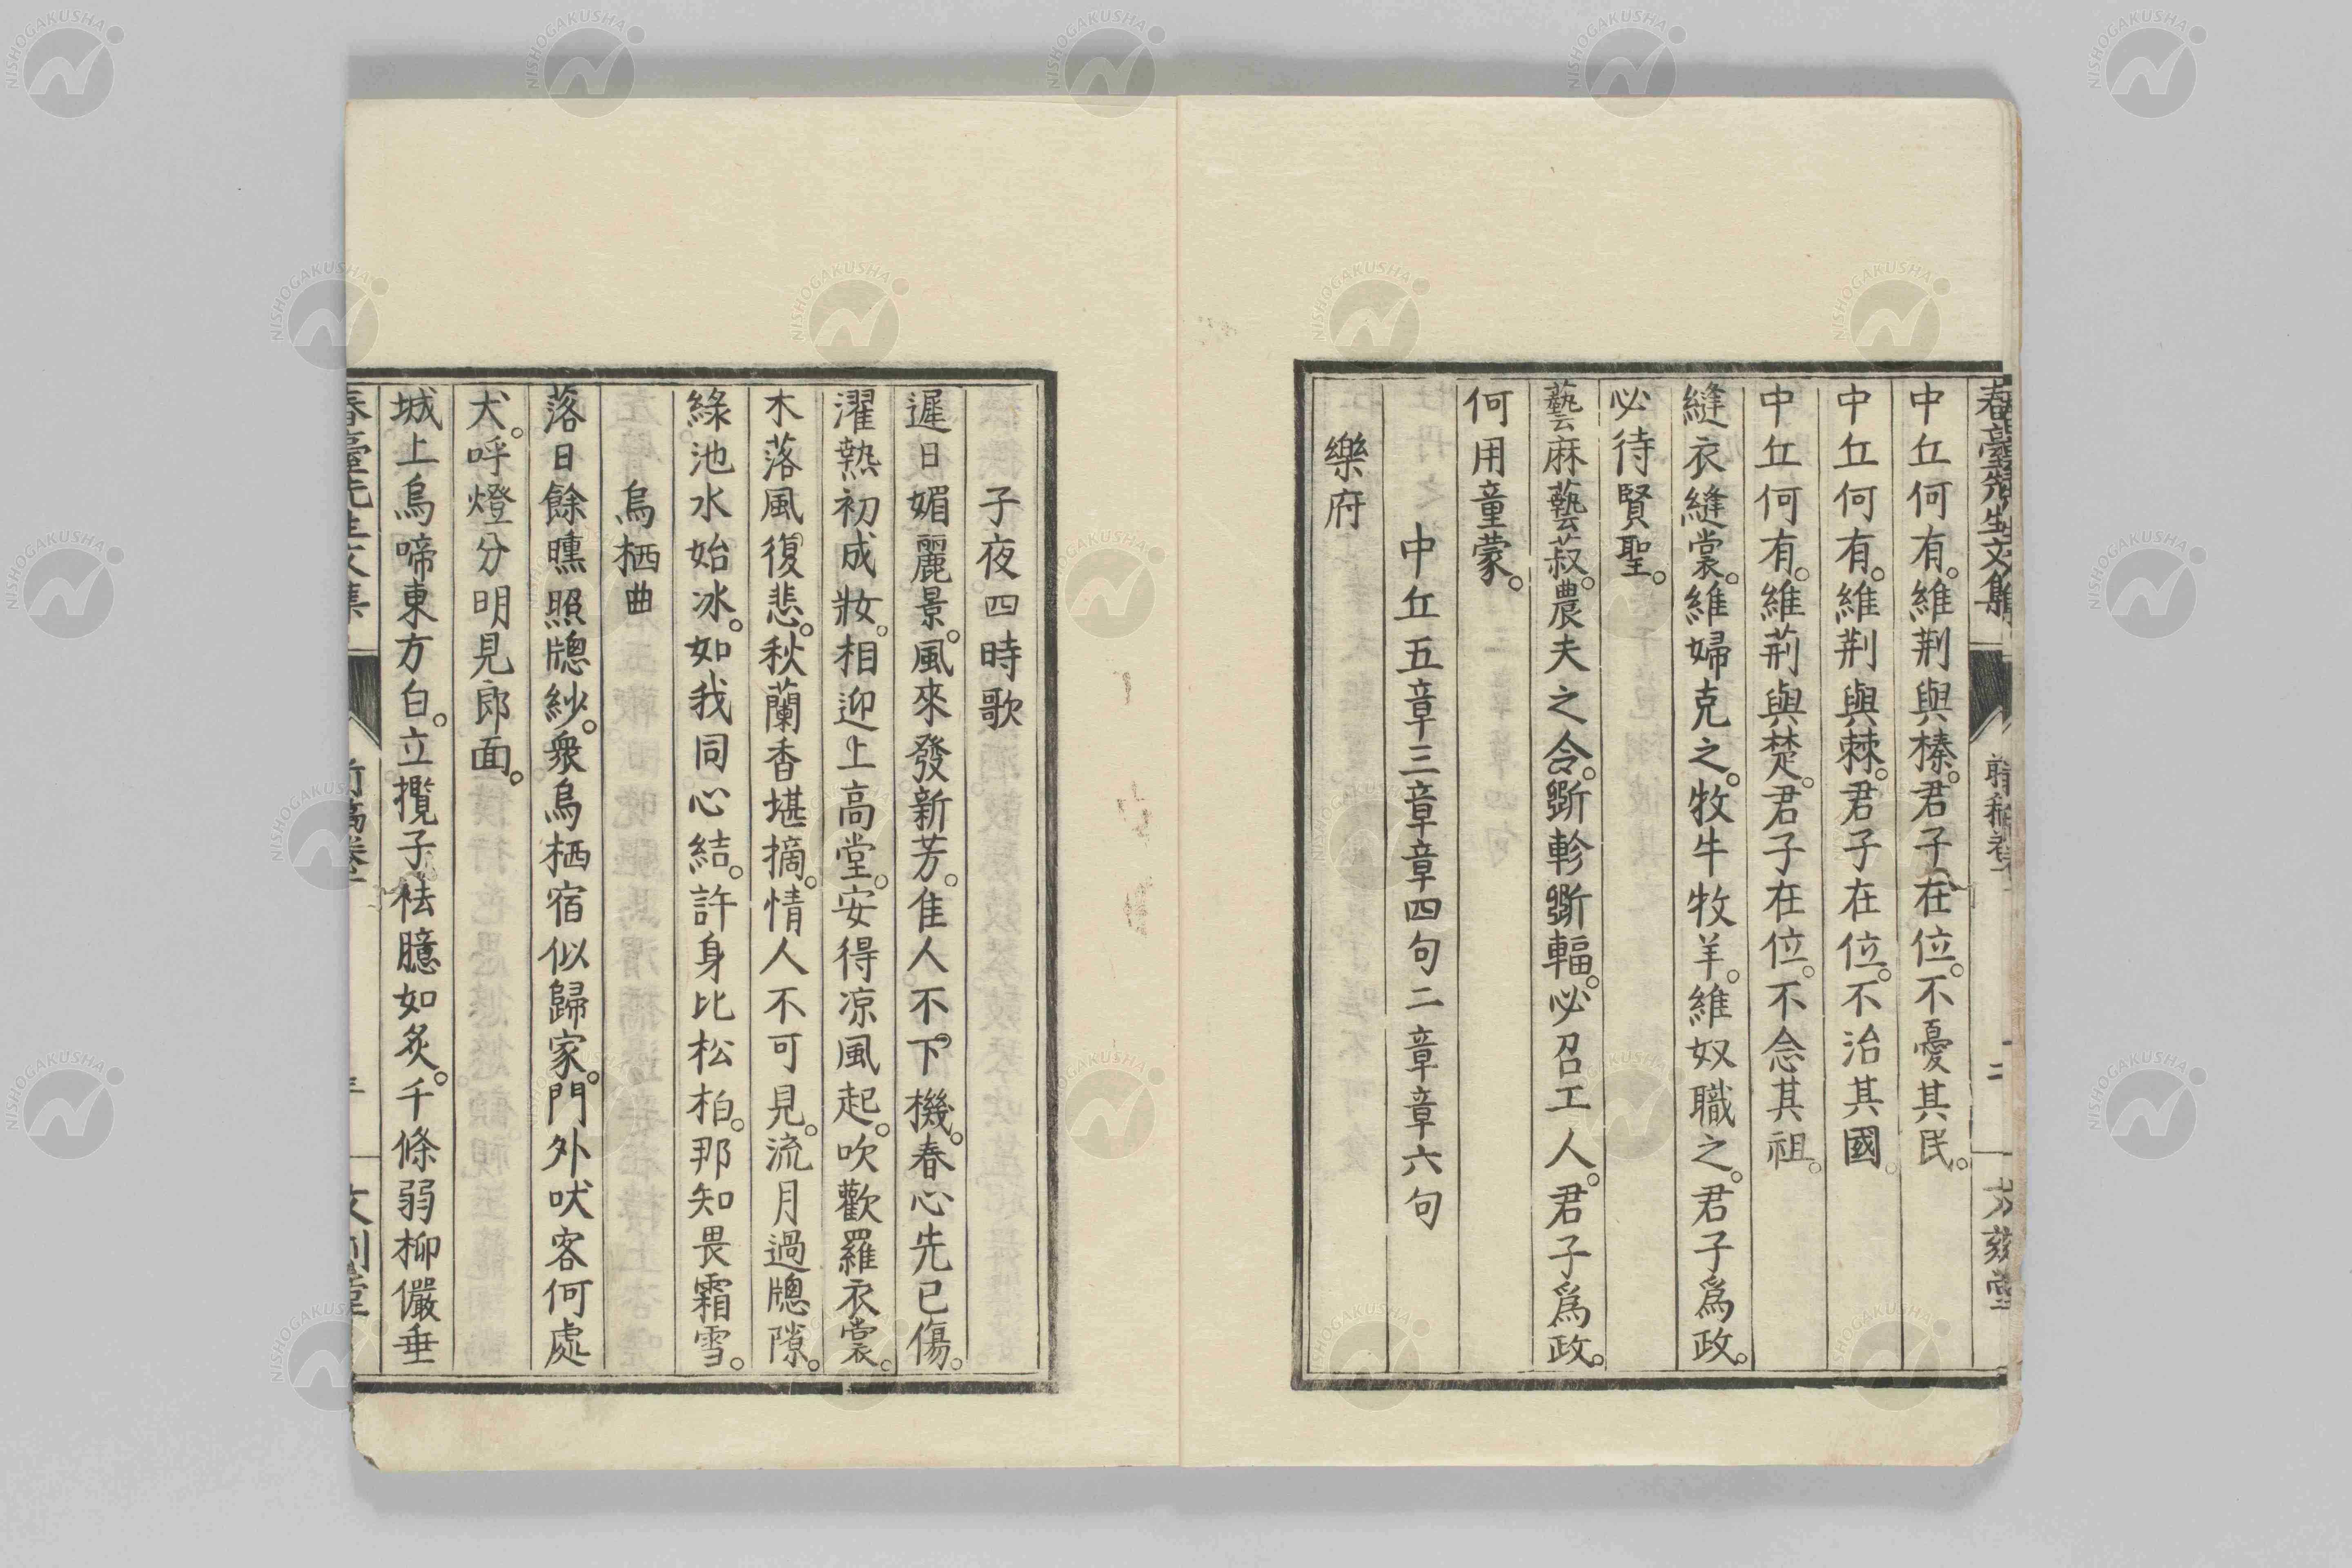 中丘何有。維荆與榛。君子在位。不憂其民。
中丘何有。維荆與棘。君子在位。不治其國。
中丘何有。維荊與楚。君子在位。不念其祖。
縫衣縫裳。維婦克之。牧牛牧羊。維奴職之。君子爲政。
必待賢聖。
藝麻藝菽。農夫之令。斲軫斲輻。必召工人。君子爲政。
何用童蒙。
中丘五章三章章四句二章章六句
樂府
子夜四時歌
遲日媚麗景。風來發新芳。佳人不下機。春心先已傷。
濯熱初成妝。相迎上高堂。安得凉風起。吹歡羅衣裳。
木落風復悲。秋蘭香堪摘。情人不可見。流月過牕隙。
綠池水始冰。如我同心結。許身比松柏。那知畏霜雪。
烏栖曲
落日餘曛照牕紗。衆烏栖宿似歸家。門外吠客何處
犬。呼燈分明見郎面。
城上烏啼東方白。立攬子袪臆如炙。千條弱柳儼垂
NISHOGAKUSHA